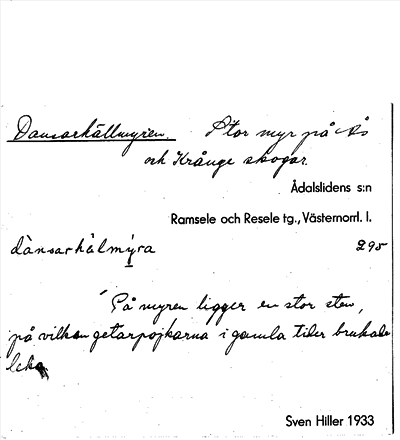 Dansarhällmyren. Stor myr på Ås
och Krånge skogar.
Ådalslidens s:n
Ramsele och Resele tg., Västernorrl. l.
dànsarhälmýra 295
På myren ligger en stor sten,
på vilken getarpojkarna i gamla tider brukade
leka
Sven Hiller 1933